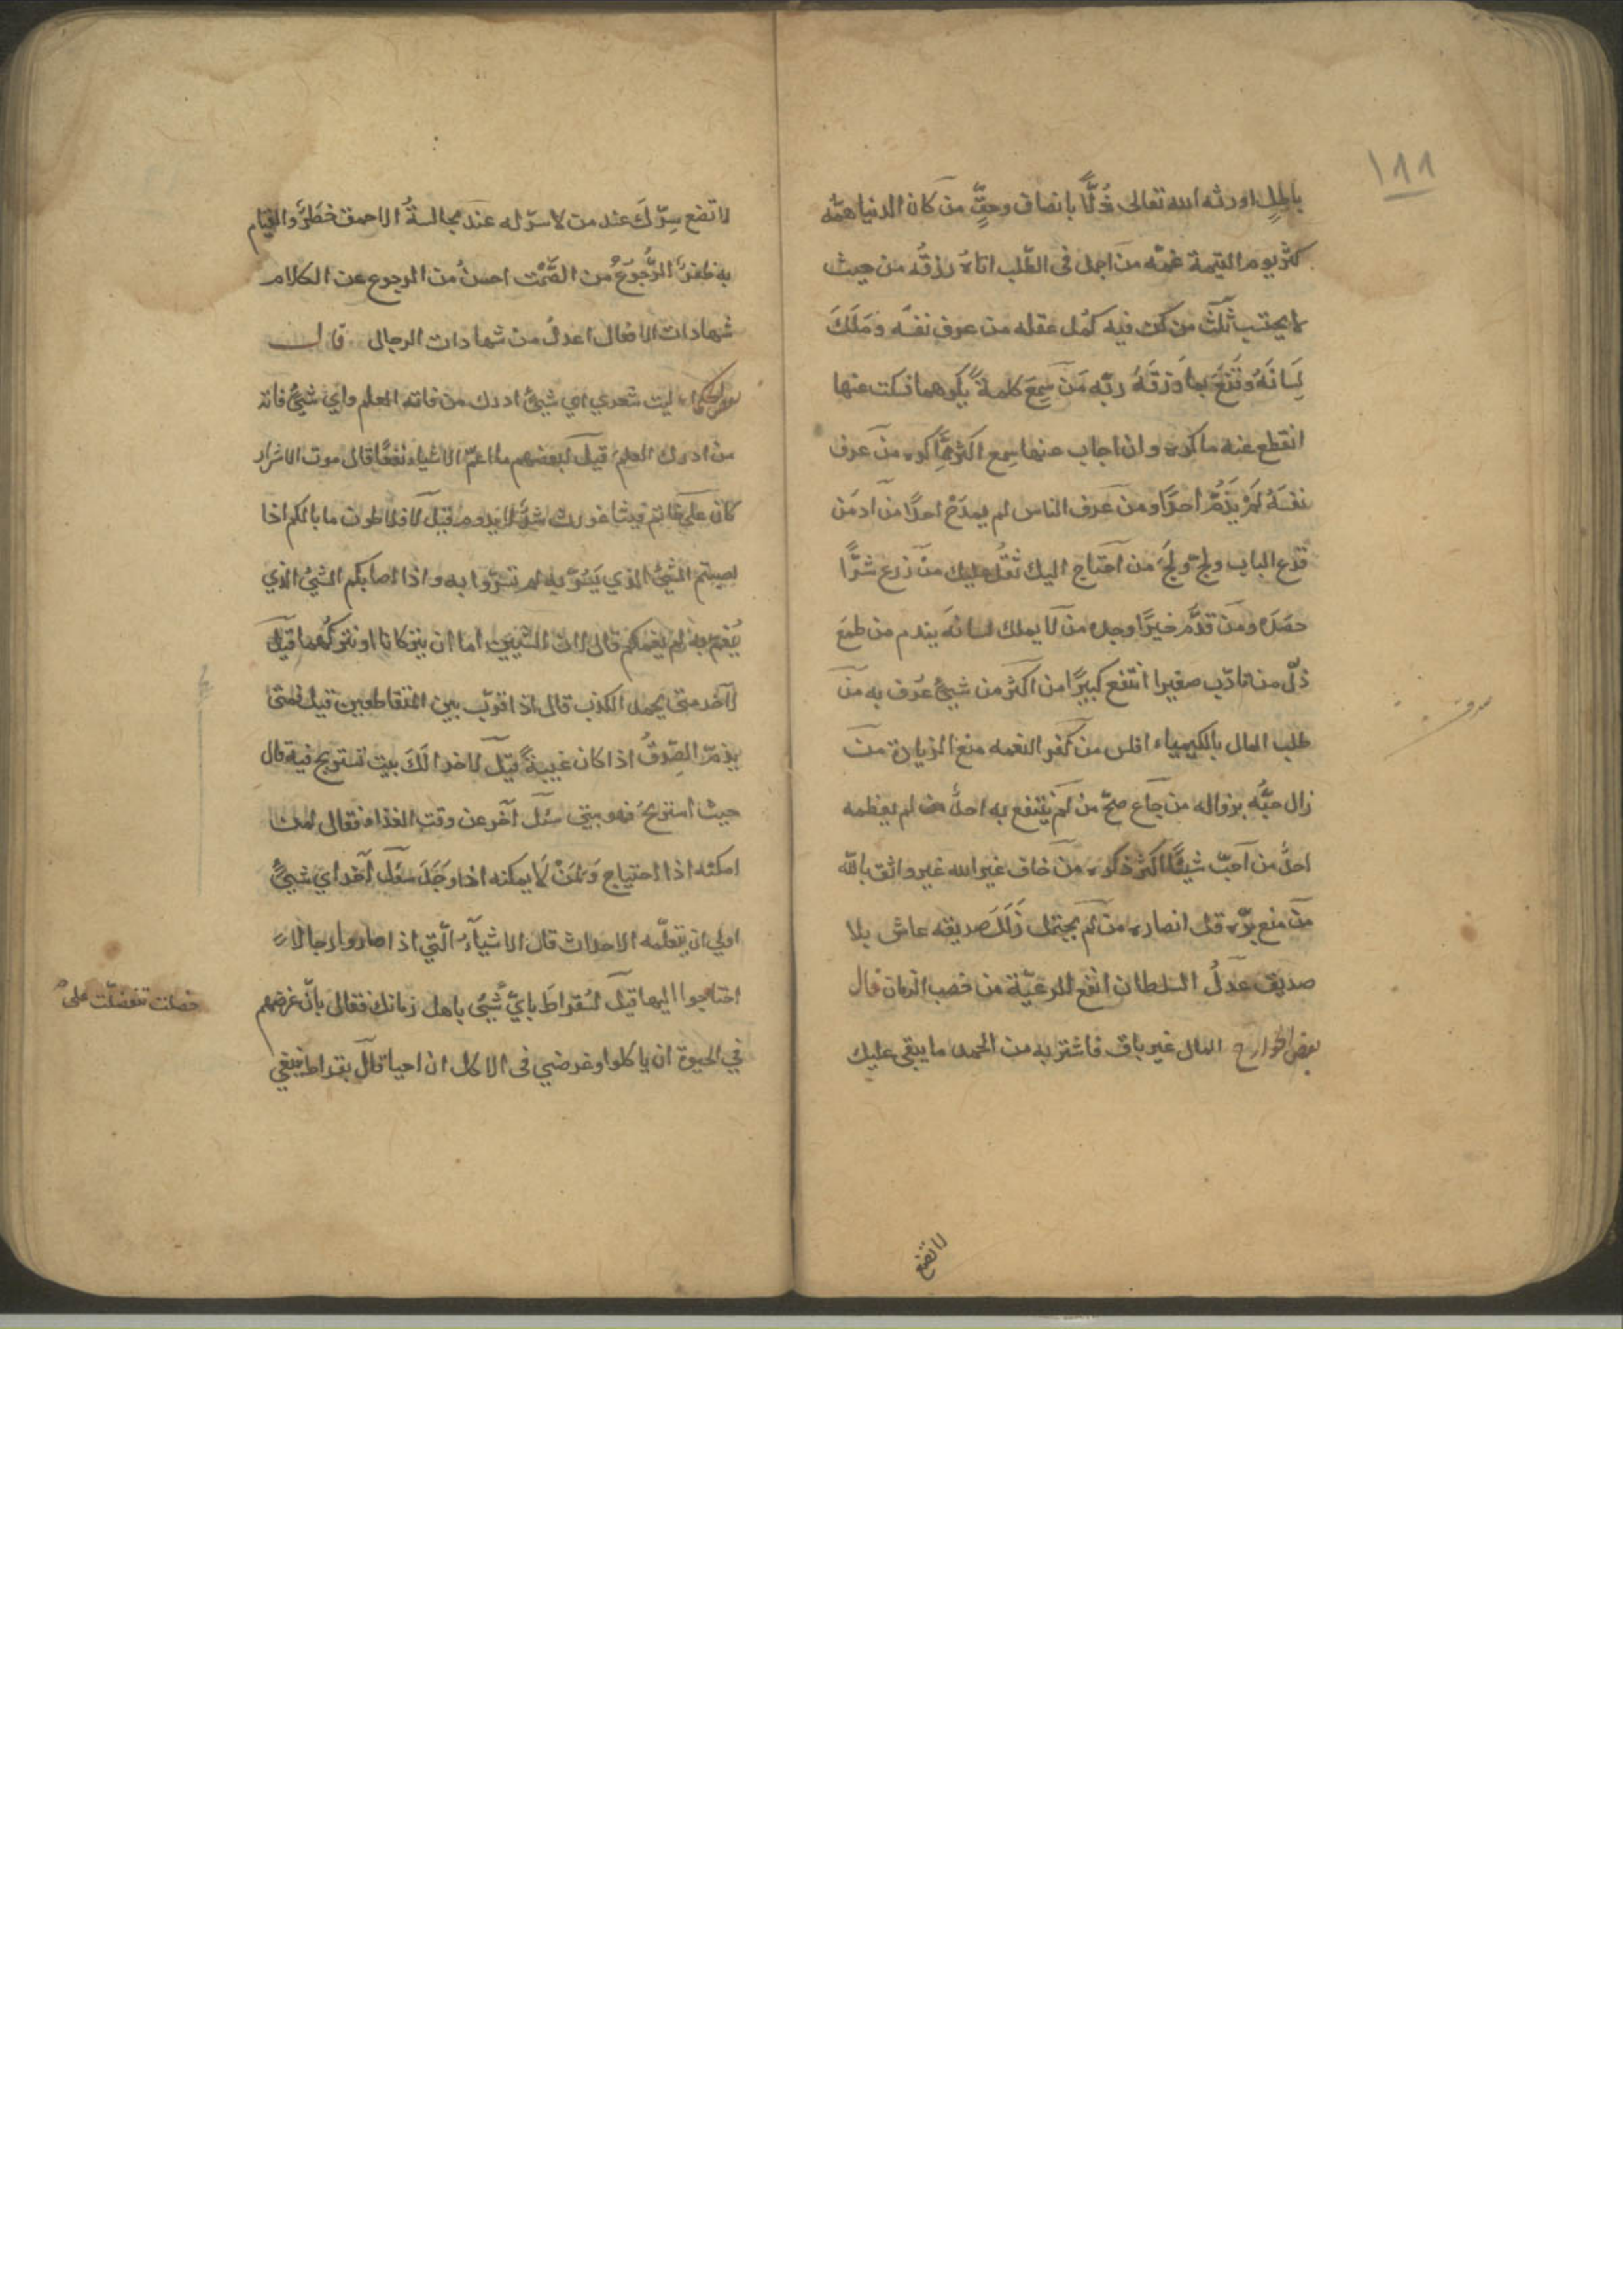 ١٨٨
باطلٍ اورثه الله تعالى ذُلّاً بانصاف وحقٍّ من كان الدنيا همّه
كثر يوم القيمة غمّه من اجمل فى الطّلب اتاهُ رزقُه من حيث
لا يحتسب ثلثٌ من كنّ فيه كمُل عقله من عرف نفسَه ومَلَكَ
لِسَانَهُ وقَنَعَ بما رَزقَهُ ربّه مَنْ سِمعَ كلمةً يكرهها فسكت عنها
انقطع عنه ماكره وان اجاب عنها سمع اكثر ممّا كره من عرف
نفسَهُ لَمْ يَذُمّ احدًا ومن عرف الناس لم يمدَحْ احدًا من ادمَن
قَرْع الباب ولجّ ولَجَ من احتاج اليك ثقُل عليك من زرع شرًّا
حصَده ومن قدَّم خيرًا وجده من لا يملك لسانه يندم من طمعَ
ذلّ من تادّب صغيرا انتفع كبيرًا من اكثر من شيئٍ عُرف به من
طلب المال بالكيمياء افلس من كفر النعمه منع الزيادة من
زال حبّه بزواله من جاع صحّ من لم ينتفع به احدٌ لم يعظمه
احدٌ من احبّ شيئًا اكثر ذكره من خاف غير الله غير واثق بالله
من منع برّه قل انصاره من لم يحتمل زَلَلَ صديقه عاش بلا
صديق عدلُ السلطان انفع للرعيّة من خصب الزمان قال
بعض الخوارج المال غير باق فاشتر به من الحمد ما يبقى عليك
لا تضع
لا تضع سِرّكَ عند من لا سرّ له عند مجالسةُ الاحمق خطَرٌ والقيام
به ظفرٌ الرُّجوعُ من الصَّمْت احسنُ من الرجوع عن الكلام
شهادات الافعال اعدلُ من شهادات الرجال قال
بعض الحكماء ليت شعري اي شيئٍ ادرك من فاته العلم واي شيئٍ فاته
من ادرك العلم قيل لبعضهم ما اعمّ الاشياء نفعًا قال موت الاشرار
كان على خاتم فيثاغورث شرٌّ لا يدوم قيل لافلاطون ما بالكم اذا
اصبتم الشيئ الذي يُسَرّ به لم تسرّوا به واذا اصابكم الشيئ الذي
يُغتم به لم يغمكم قال لان الشيئين اما ان يتركانا او نتركهما قيل
لآخر متى يحمد الكذب قال اذا قرّب بين المتقاطعين قيل فمتى
يذمّ الصّدقُ اذا كان غيبةً قيل لاخر الَكَ بيت تستريح فيه قال
حيث استريحُ فهو بيتي سئل آخر عن وقت الغذاء فقال لمن
امكنه اذا احتاج وَلمَنْ لا يمكنه اذا وَجَدَ سئل آخر اي شيئٍ
اولى ان يتعلّمه الاحداث قال الاشيآءَ الّتي اذا صاروا رجالا
احتاجوا اليها قيل لسُقراطَ بايّ شيئٍ باهل زمانك فقال بانّ غرضهم
فضلت تفضّلت على
في الحيوة ان ياكلوا وغرضي فى الاكل ان احيا قال بقراط ينبغي